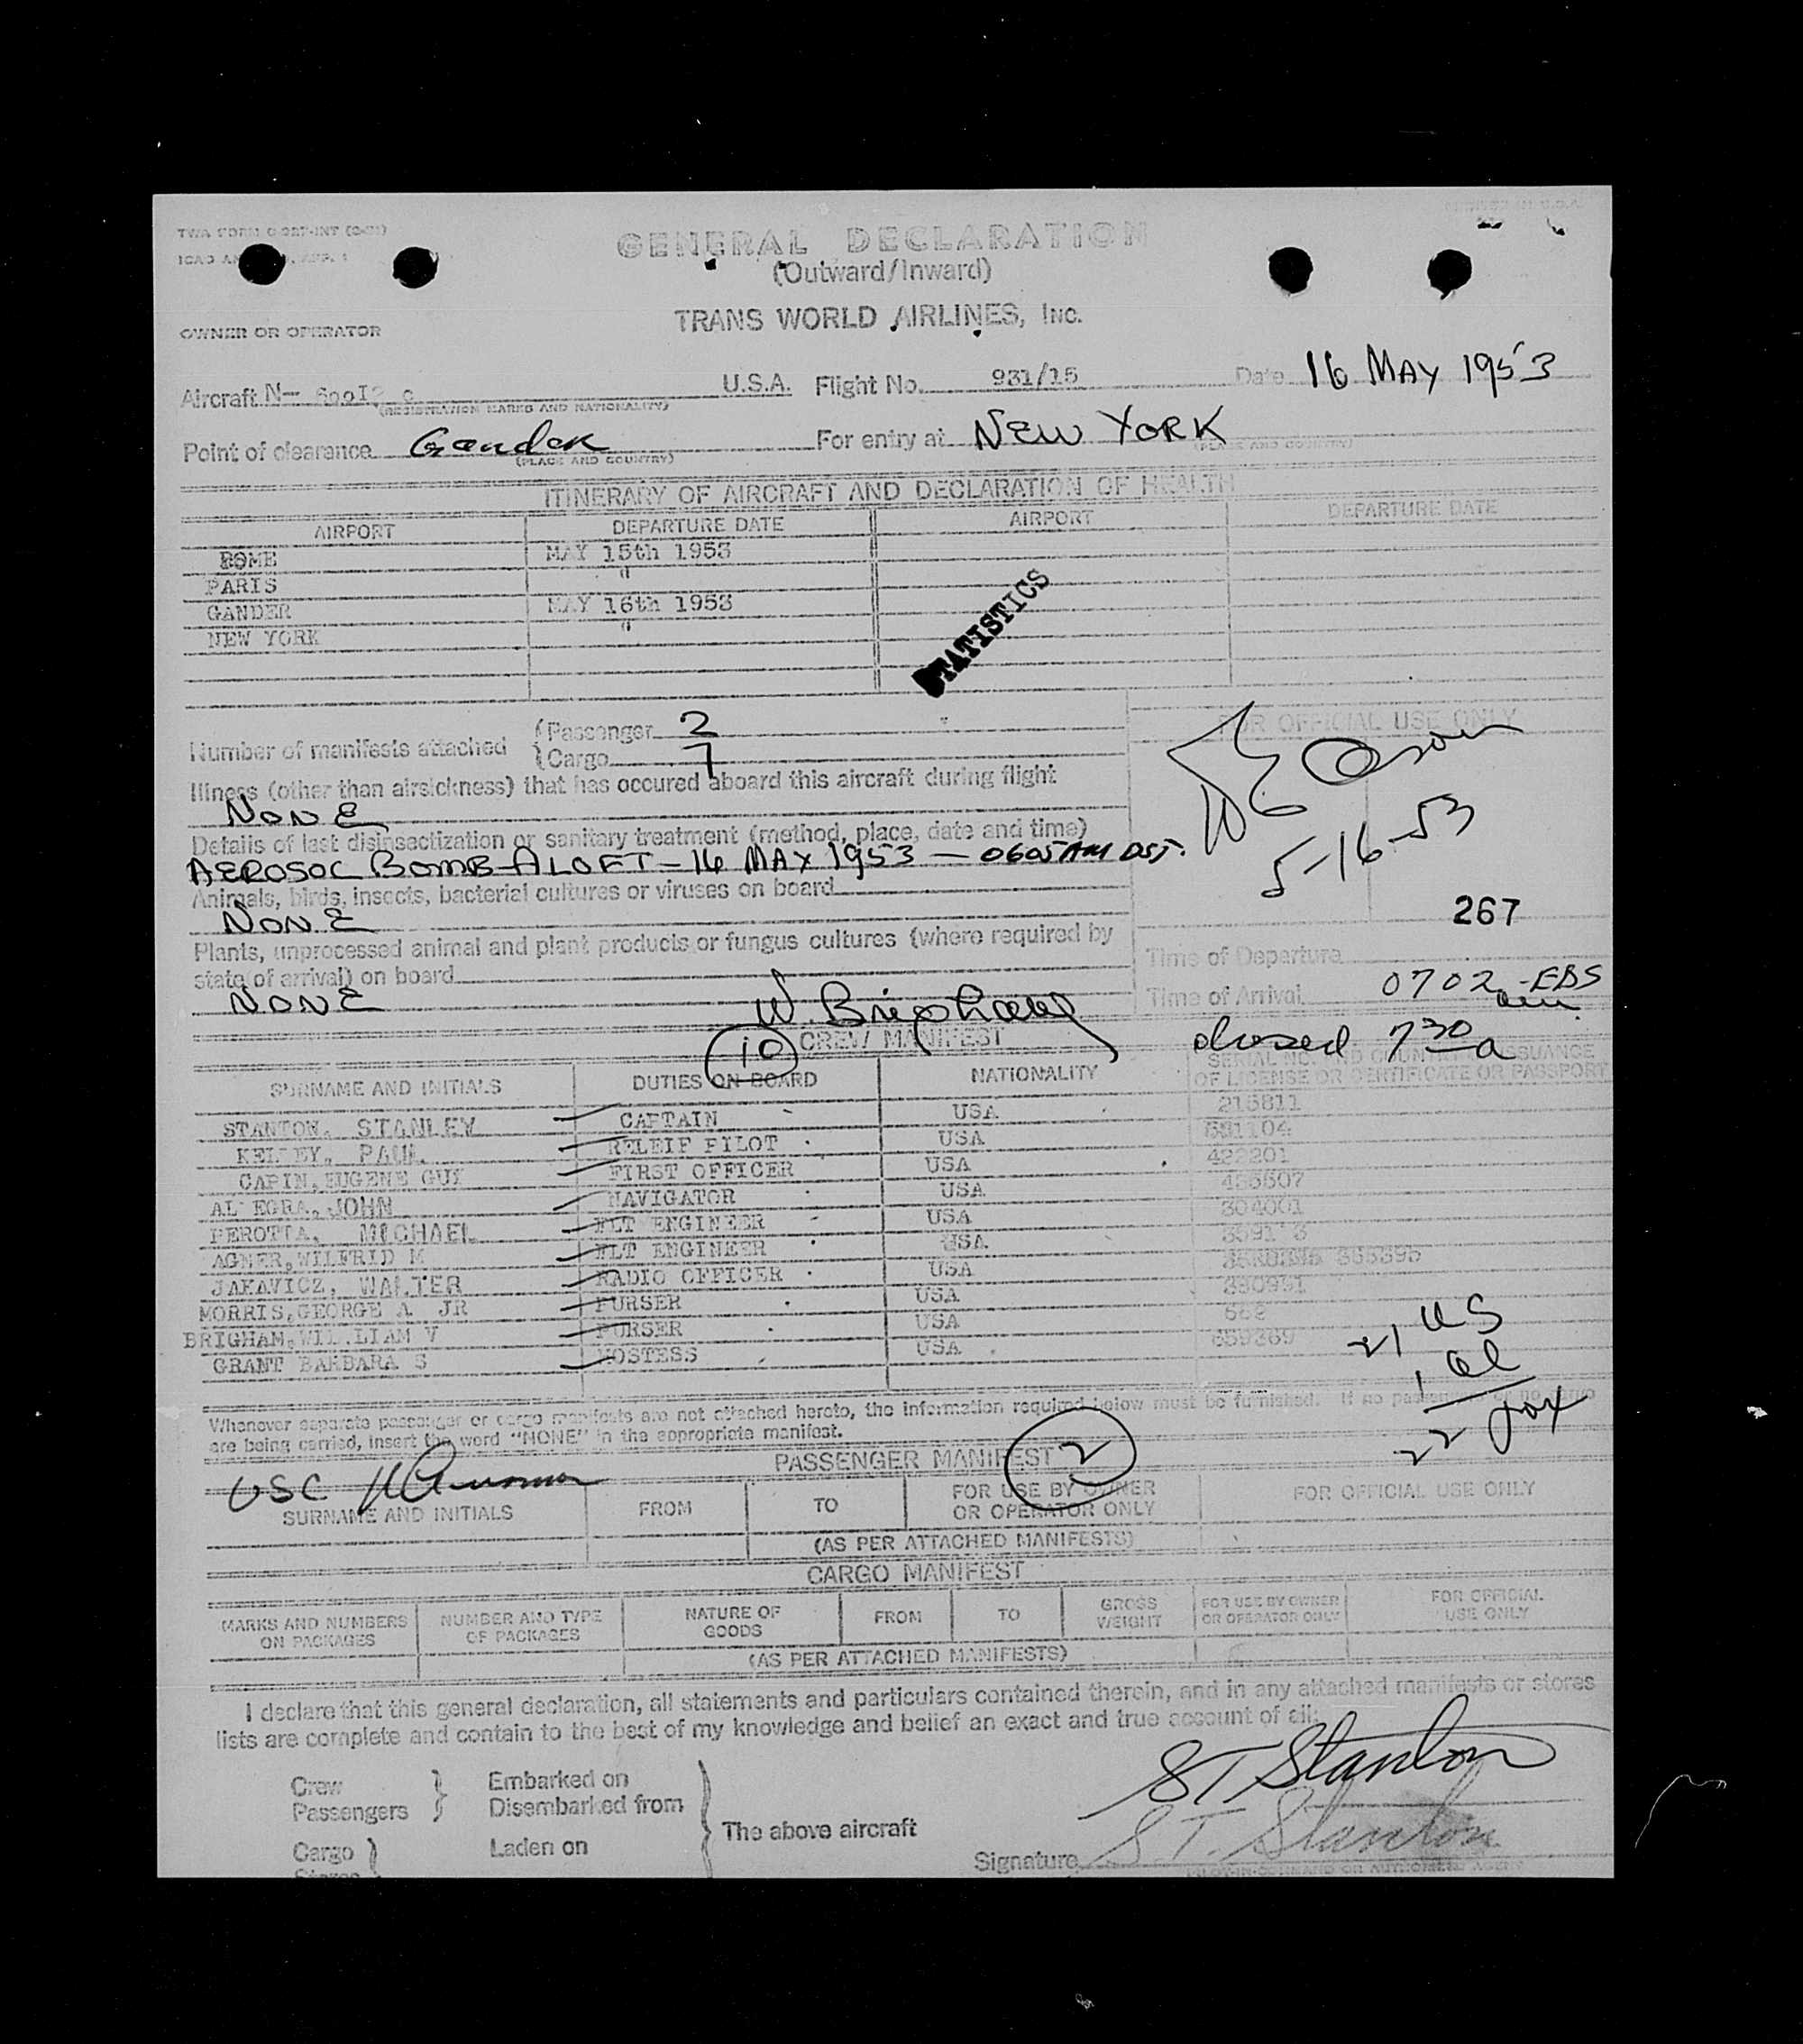 TWA FORM
ICAO
GENERAL DECLARATION
(Outward/Inward)
TRANS WORLD AIRLINES, INC.
OWNER OR OPERATOR
Aircraft N- U.S.A. Flight No. 931/15 Date 16 MAY 1953
(REGISTRATION MARKS AND NATIONALITY)
Point of clearance Gander For entry at NEW YORK
(PLACE AND COUNTRY) (PLACE AND COUNTRY)
ITINERARY OF AIRCRAFT AND DECLARATION OF HEALTH
AIRPORT DEPARTURE DATE AIRPORT DEPARTURE DATE
ROME MAY 15th 1953
PARIS "
GANDER MAY 16th 1953
NEW YORK "
STATISTICS
Number of manifests attached (Passenger 2
Cargo 7
FOR OFFICIAL USE ONLY
Illness (other than airsickness) that has occured aboard this aircraft during flight
NONE
Details of last disinsectization or sanitary treatment (method, place, date and time)
AEROSOL BOMB-ALOFT-16 MAY 1953 - 0605AM DST.
5-16-53
Animals, birds, insects, bacterial cultures or viruses on board
NONE
267
Plants, unprocessed animal and plant products or fungus cultures (where required by
state of arrival) on board
NONE
Time of Departure
Time of Arrival 0702 am -EBS
W. Brigham
closed 7 30 a
10 CREW MANIFEST
SURNAME AND INITIALS DUTIES ON BOARD NATIONALITY SERIAL NO. AND COUNTRY OF ISSUANCE
OF LICENSE OR CERTIFICATE OR PASSPORT
STANTON, STANLEY CAPTAIN USA 215811
KELLEY, PAUL RELEIF PILOT USA
CAPIN, EUGENE GUY FIRST OFFICER USA 422201
ALLEGRA, JOHN NAVIGATOR USA
PEROTTA, MICHAEL FLT ENGINEER USA 304001
AGNER, WILFRID M FLT ENGINEER USA
JAKAVICZ, WALTER RADIO OFFICER USA
MORRIS, GEORGE A JR PURSER USA
BRIGHAM, WILLIAM V PURSER USA
GRANT BARBARA S HOSTESS USA
21 US
1 al
22 pax
Whenever separate passenger or cargo manifests are not attached hereto, the information required below must be furnished. If no passengers or no cargo
are being carried, insert the word "NONE" in the appropriate manifest.
PASSENGER MANIFEST 2
SURNAME AND INITIALS FROM TO FOR USE BY OWNER
OR OPERATOR ONLY FOR OFFICIAL USE ONLY
(AS PER ATTACHED MANIFESTS)
CARGO MANIFEST
MARKS AND NUMBERS
ON PACKAGES NUMBER AND TYPE
OF PACKAGES NATURE OF
GOODS FROM TO GROSS
WEIGHT FOR USE BY OWNER
OR OPERATOR ONLY FOR OFFICIAL
USE ONLY
(AS PER ATTACHED MANIFESTS)
I declare that this general declaration, all statements and particulars contained therein, and in any attached manifests or stores
lists are complete and contain to the best of my knowledge and belief an exact and true account of all:
Crew
Passengers
Embarked on
Disembarked from
Cargo
Stores
Laden on
The above aircraft
ST Stanton
Signature S.T. Stanton